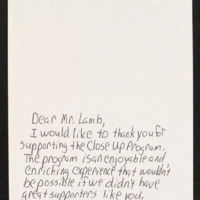 Dear Mr. Lamb,
I would like to thank you for
supporting the Close Up Program.
The program is an enjoyable and
enriching experience that wouldn't
be possible if we didn't have
great supporters like you,